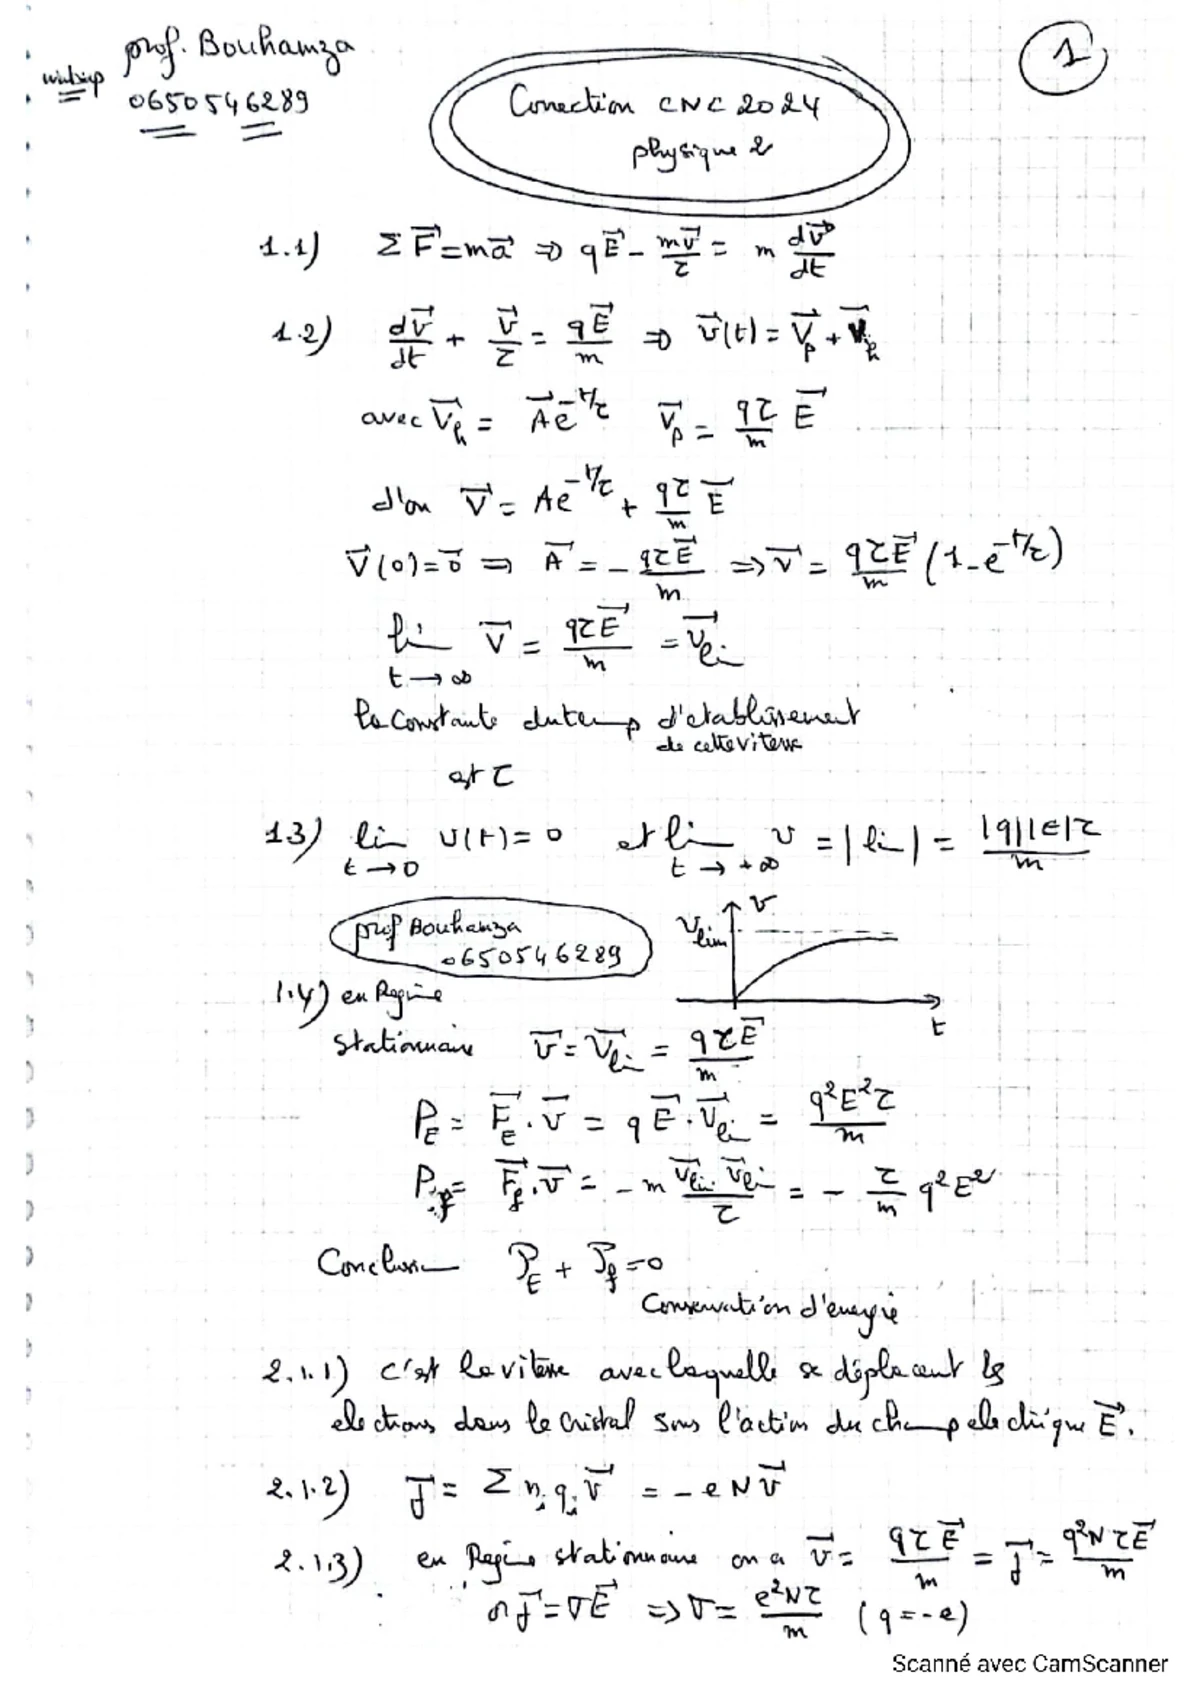 prof. Bouhamza
0650546289
1
Correction CNC 2024
physique 2
1.1) Σ F⃗ = m a⃗ ⇒ q E⃗ - m v⃗ / τ = m dv⃗/dt
1.2) dv⃗/dt + v⃗/τ = q E⃗/m ⇒ v⃗(t) = V⃗p + V⃗h
avec V⃗h = A⃗ e^(-t/τ) V⃗p = qτ/m E⃗
d'où V⃗ = A e^(-t/τ) + qτ/m E⃗
V⃗(0) = 0⃗ ⇒ A⃗ = - qτE⃗/m ⇒ v⃗ = qτE⃗/m (1 - e^(-t/τ))
lim t→∞ V⃗ = qτE⃗/m = V⃗lim
la constante du temp d'etablissement
de cette vitesse
est τ
1.3) lim t→0 v(t) = 0 et lim t→+∞ v = |lim| = |q||E|τ/m
Vlim v
prof Bouhamza
0650546289
t
1.4) en Regime
stationnaire v⃗ = V⃗lim = qτE⃗/m
P_E = F⃗_E . v⃗ = q E⃗ . V⃗lim = q²E²τ/m
P_f = F⃗_f . v⃗ = - m V⃗lim . V⃗lim/τ = - τ/m q²E²
Conclusion P_E + P_f = 0
Conservation d'energie
2.1.1) c'est la vitesse avec laquelle se déplacent les
electrons dans le cristal sous l'action du champ electrique E⃗.
2.1.2) J⃗ = Σ nᵢ qᵢ v⃗ = - e N v⃗
2.1.3) en Regime stationnaire on a v⃗ = qτE⃗/m = J⃗ = q²NτE⃗/m
or J⃗ = σE⃗ ⇒ σ = e²Nτ/m (q = -e)
Scanné avec CamScanner